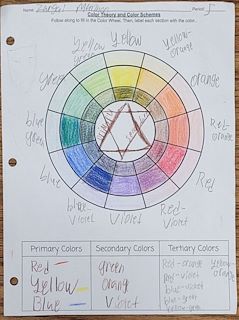 Name:
Period: 5
Color Theory and Color Schemes
Follow along to fill in the Color Wheel. Then, label each section with the color.
yellow
yellow green
yellow-orange
green
orange
blue green
Red-orange
blue
Red
blue-violet
Violet
Red-violet
Primary Colors
Secondary Colors
Tertiary Colors
Red
green
Red-orange yellow-orange
Yellow
orange
red-violet
Blue
Violet
blue-violet
blue-green
yellow-green